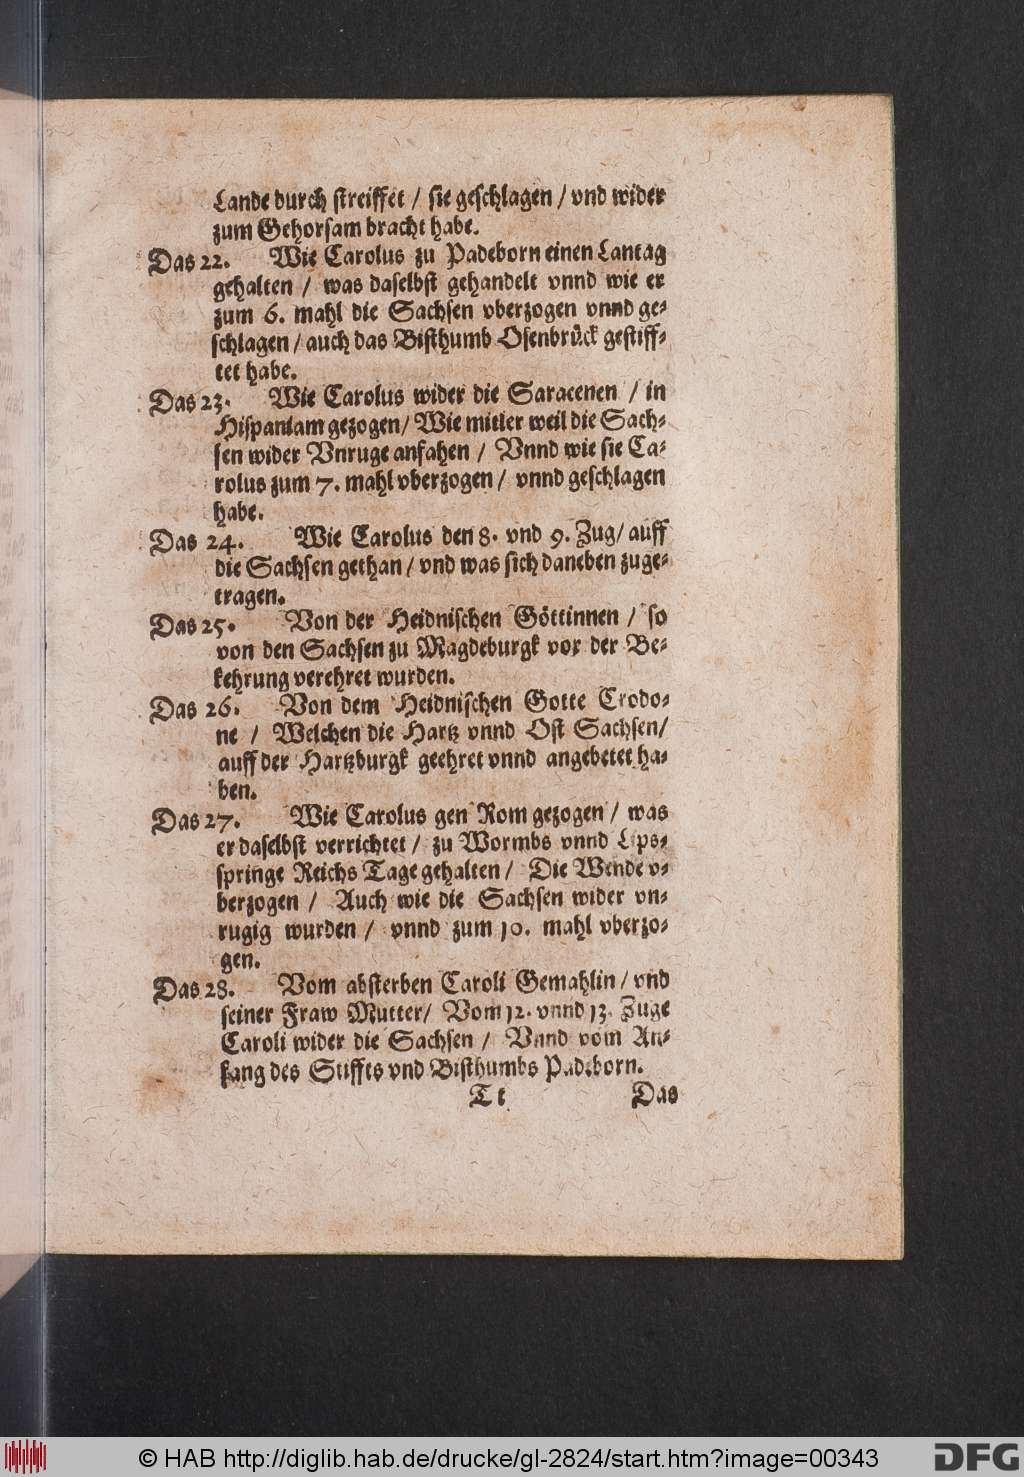 Lande durch streiffet / sie geschlagen / vnd wider
zum Gehorsam bracht habe.
Das 22. Wie Carolus zu Padeborn einen Lantag
gehalten / was daselbst gehandelt vnnd wie er
zum 6. mahl die Sachsen vberzogen vnnd ge-
schlagen / auch das Bisthumb Osenbrück gestiff-
tet habe.
Das 23. Wie Carolus wider die Saracenen / in
Hispaniam gezogen / Wie mitler weil die Sach-
sen wider Vnruge anfahen / Vnnd wie sie Ca-
rolus zum 7. mahl vberzogen / vnnd geschlagen
habe.
Das 24. Wie Carolus den 8. vnd 9. Zug / auff
die Sachsen gethan / vnd was sich daneben zuge-
tragen.
Das 25. Von der Heidnischen Göttinnen / so
von den Sachsen zu Magdeburgk vor der Be-
kehrung verehret wurden.
Das 26. Von dem Heidnischen Gotte Crodo-
ne / Welchen die Hartz vnnd Ost Sachsen /
auff der Hartzburgk geehret vnnd angebetet ha-
ben.
Das 27. Wie Carolus gen Rom gezogen / was
er daselbst verrichtet / zu Wormbs vnnd Lips-
springe Reichs Tage gehalten / Die Wende v-
berzogen / Auch wie die Sachsen wider vn-
rugig wurden / vnnd zum 10. mahl vberzo-
gen.
Das 28. Vom absterben Caroli Gemahlin / vnd
seiner Fraw Mutter / Vom 12. vnnd 13. Zuge
Caroli wider die Sachsen / Vnnd vom An-
fang des Stiffts vnd Bisthumbs Padeborn.
Tt Das
© HAB http://diglib.hab.de/drucke/gl-2824/start.htm?image=00343
DFG